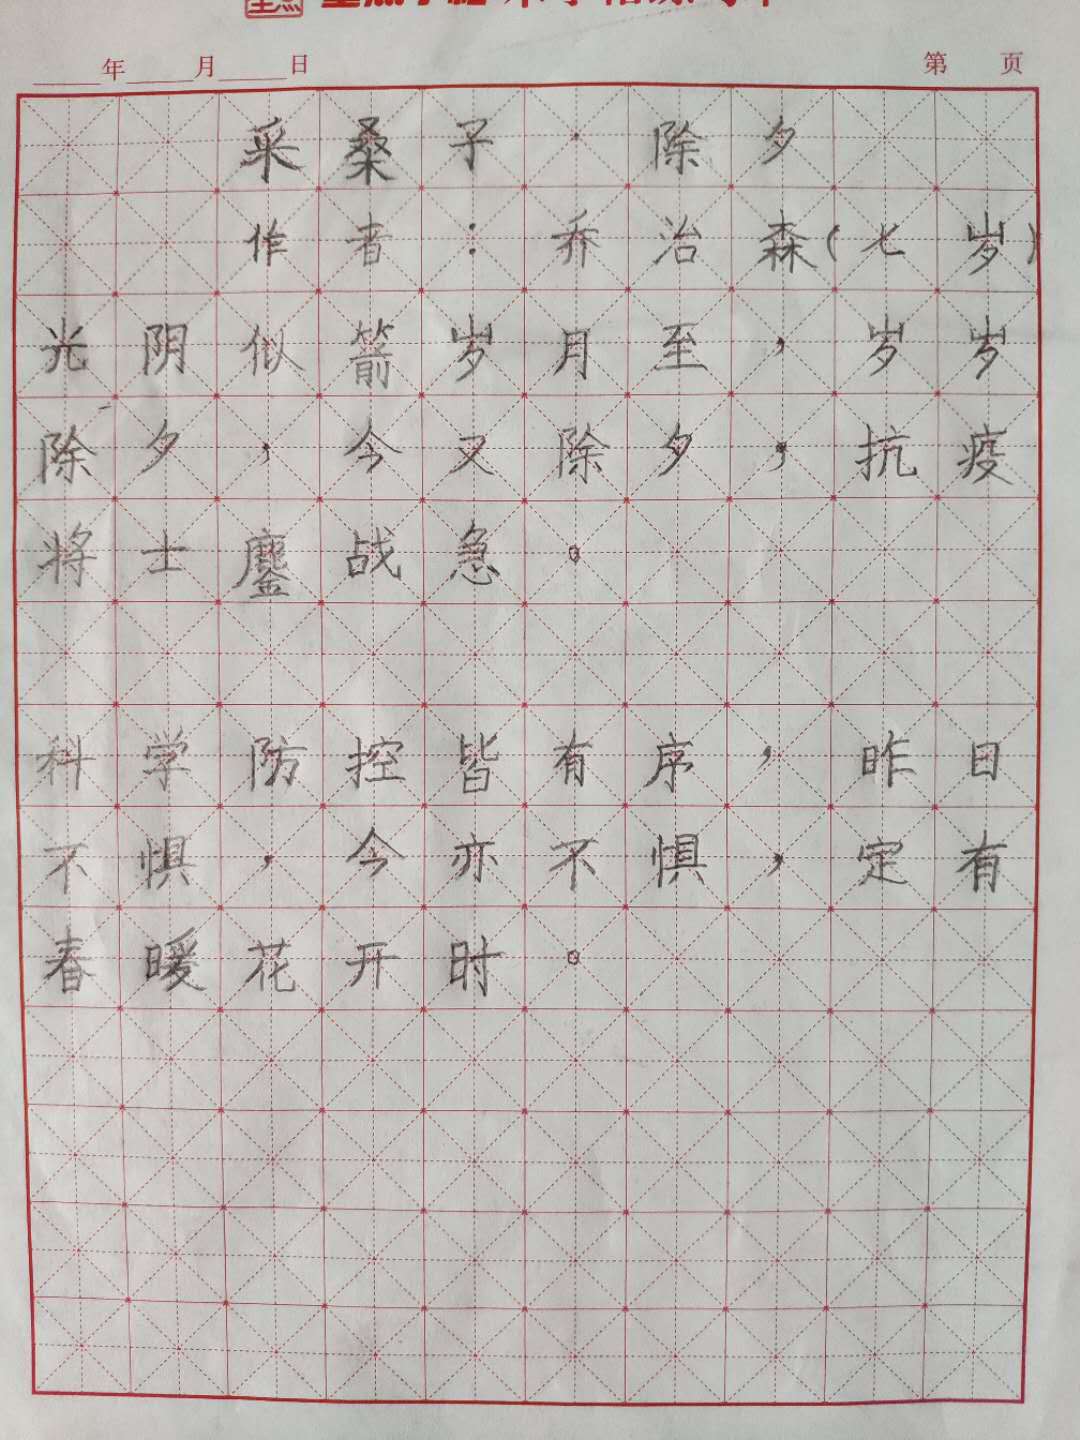 年 月 日 第 页
采桑子·除夕
作者：乔治森（七岁）
光阴似箭岁月至，岁岁
除夕，今又除夕，抗疫
将士鏖战急。
科学防控皆有序，昨日
不惧，今亦不惧，定有
春暖花开时。